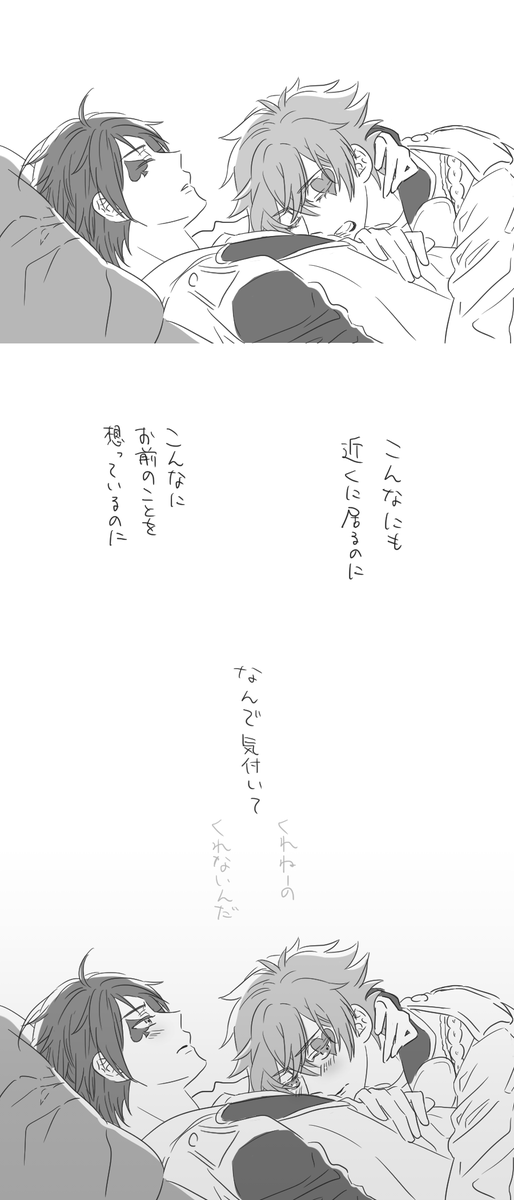 こんなにも
近くに居るのに
こんなに
お前のことを
想っているのに
なんで気付いて
くれねーの
くれないんだ